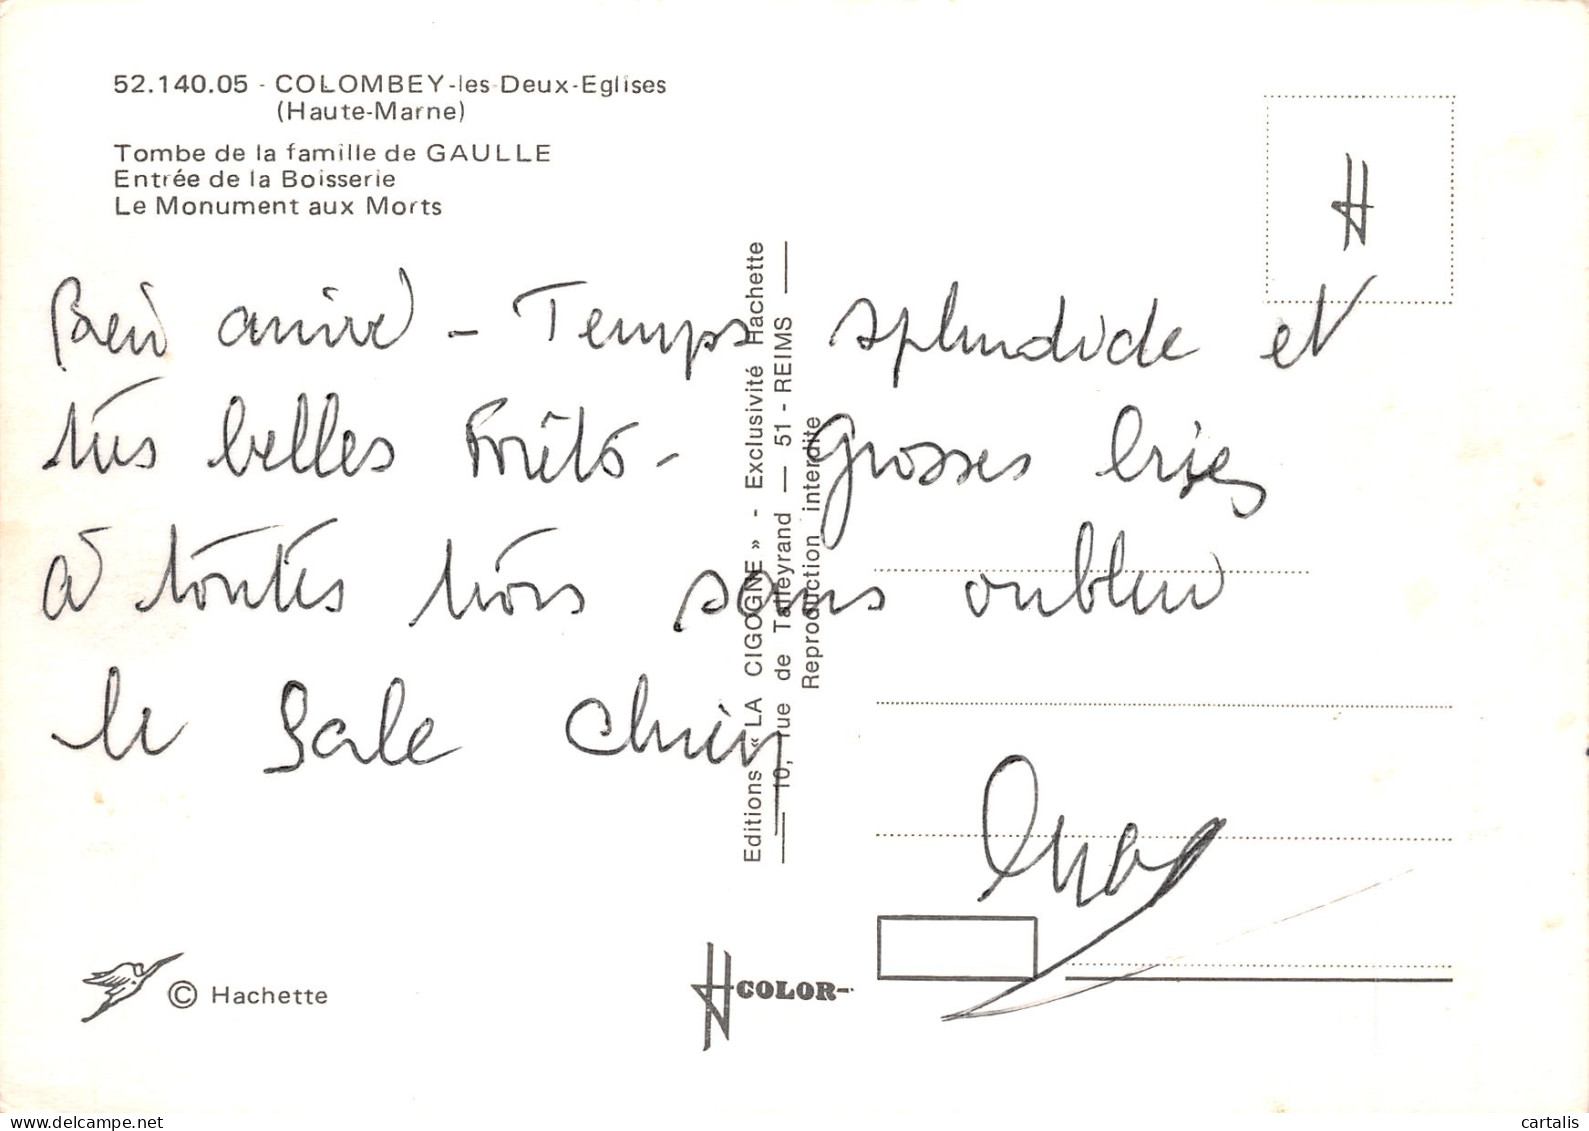 52.140.05 - COLOMBEY-les-Deux-Eglises
(Haute-Marne)
Tombe de la famille de GAULLE
Entrée de la Boisserie
Le Monument aux Morts
Bien arrivé - Temps splendide et
très belles Forêts - Grosses bises
à toutes trois sans oublier
le Sale Chien
Editions « LA CIGOGNE » - Exclusivité Hachette
10, rue de Talleyrand - 51 - REIMS
Reproduction interdite
© Hachette
COLOR
cartalis